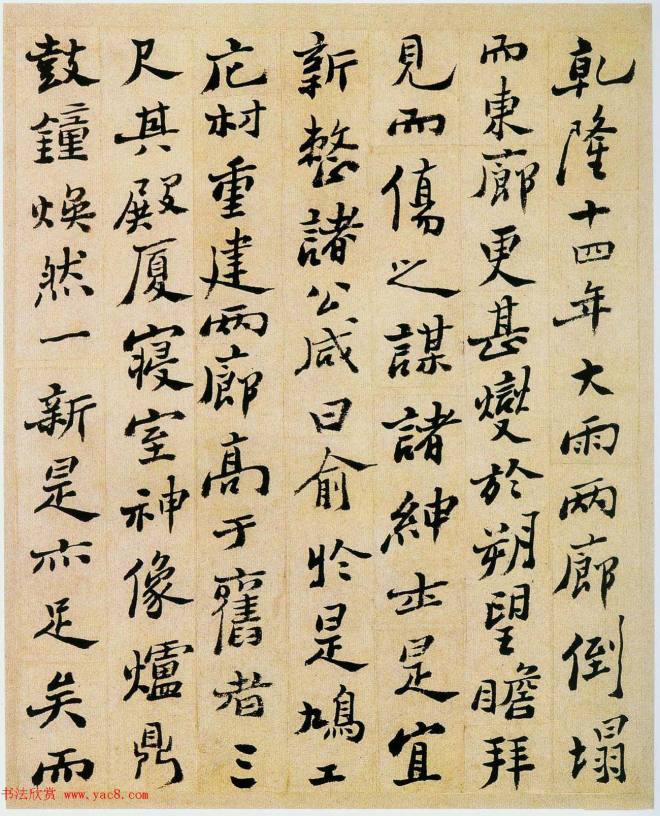 乾隆十四年大雨兩廊倒塌
而東廊更甚燮於朔望瞻拜
見而傷之謀諸紳士是宜
新整諸公咸曰俞於是鳩工
庀材重建兩廊高于舊者三
尺其殿厦寢室神像爐鼎
鼓鐘煥然一新是亦足矣而
书法欣赏 www.yac8.com